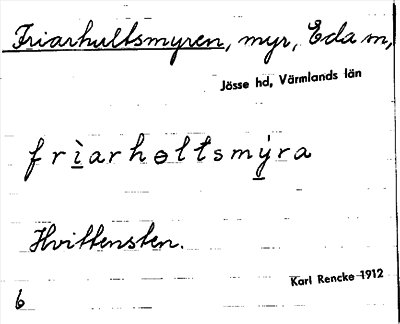 Friarhultsmyren, myr, Eda sn,
Jösse hd, Värmlands län
frìarhɵltsmýra
Hvittensten.
Karl Rencke 1912
6